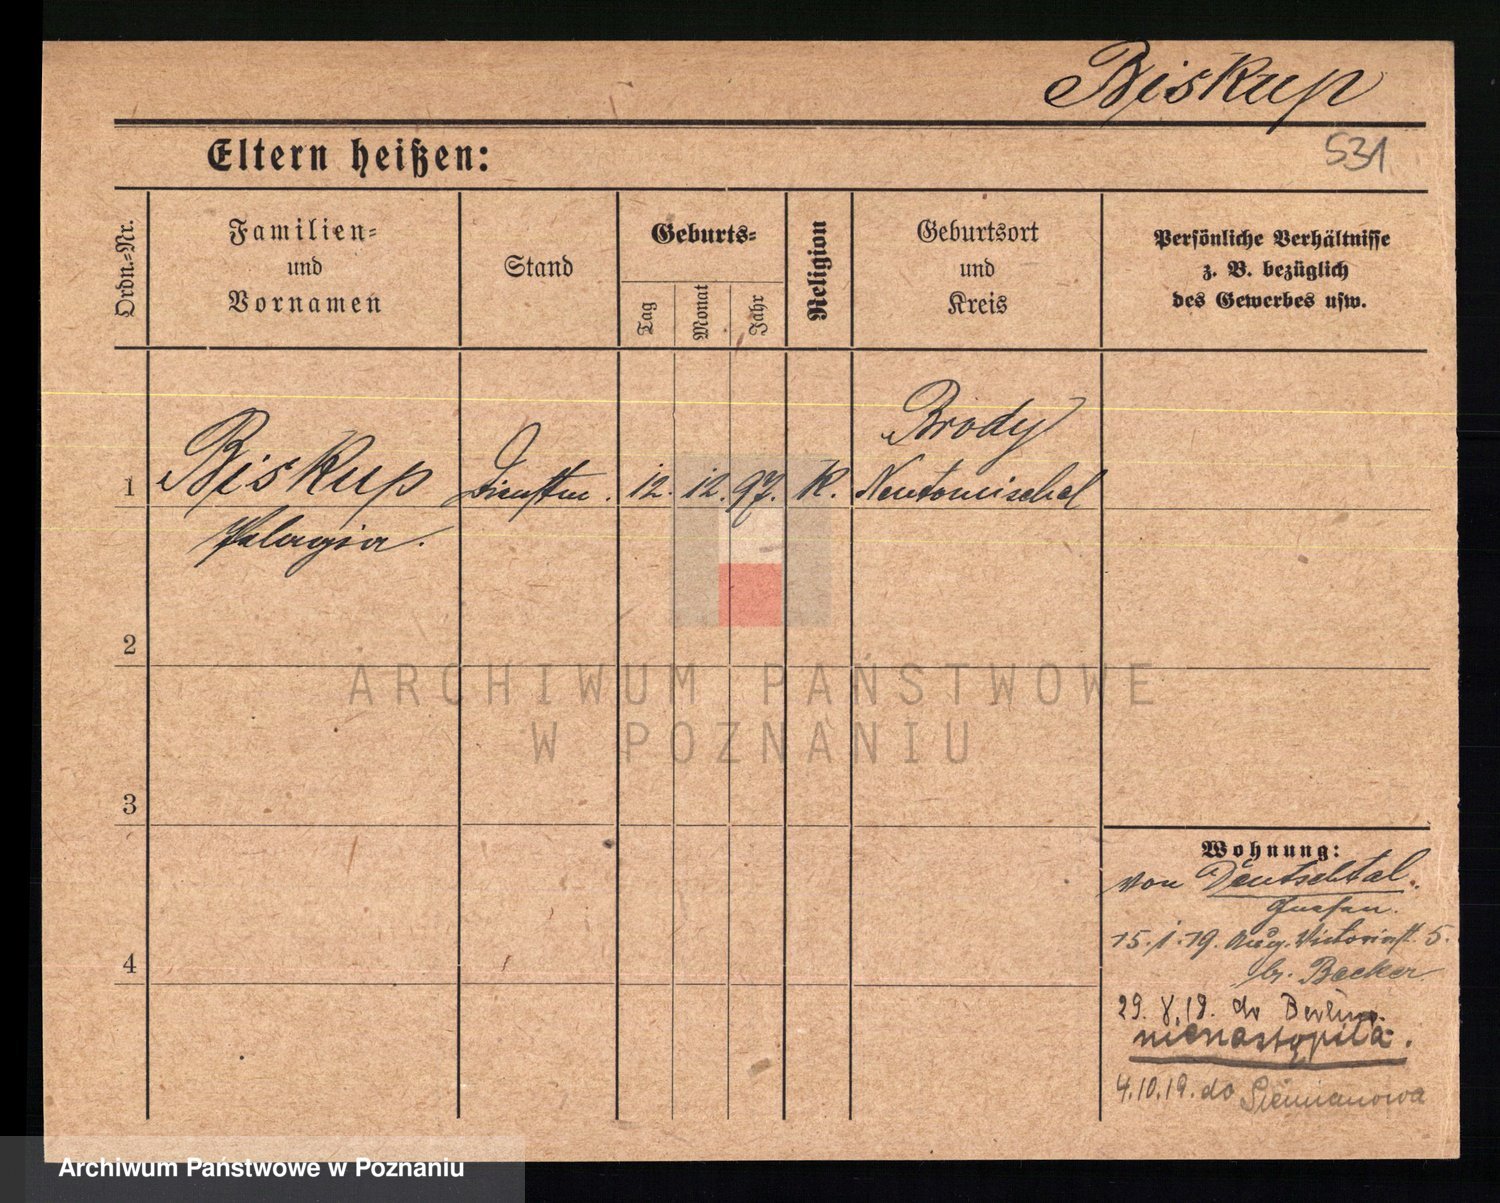 Biskup
531
Eltern heißen:
Ordn.=Nr.
Familien=
und
Vornamen
Stand
Geburts=
Tag
Monat
Jahr
Religion
Geburtsort
und
Kreis
Persönliche Verhältnisse
z. B. bezüglich
des Gewerbes usw.
1
Biskup
Pelagia.
Dienstm.
12.
12.
97.
K.
Brody
Neutomischel
2
3
4
Wohnung:
von Deutschtal.
Gnesen.
15.1.19. Aug. Victoriastr. 5.
b. Becker
29. 8. 19. do Berlina.
nienastąpiła.
4.10.19. do Siemianowa
ARCHIWUM PAŃSTWOWE
W POZNANIU
Archiwum Państwowe w Poznaniu